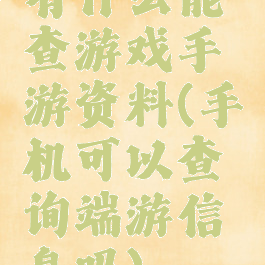 有什么能
查游戏手
游资料(手
机可以查
询端游信
息吗)